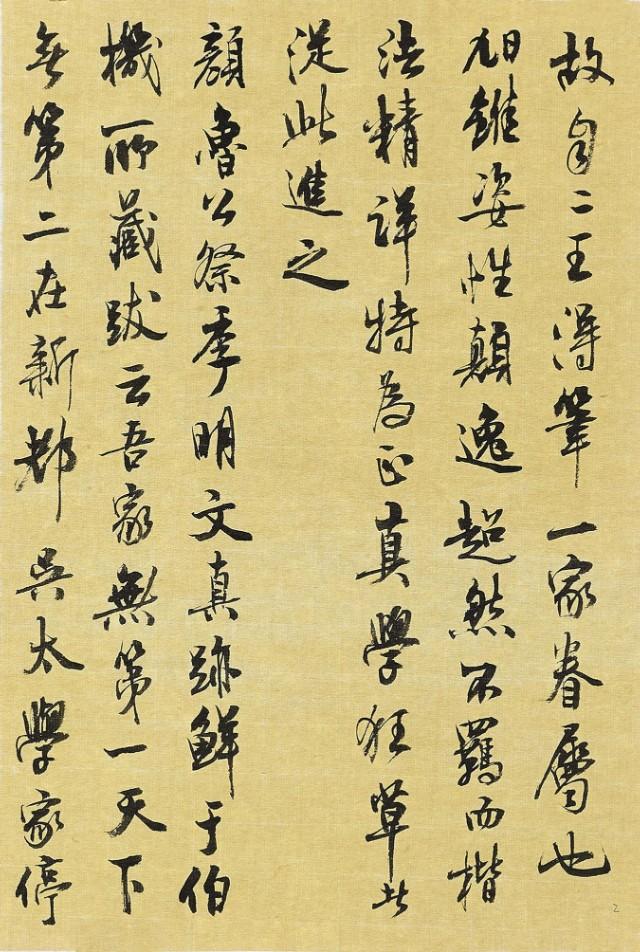 故自二王得筆一家眷屬也
旭雖姿性顛逸超然不羈而楷
法精詳特為正真學狂草者
從此進之
顏魯公祭季明文真跡鮮于伯
機所藏跋云吾家無第一天下
無第二在新都吳太學家停
2